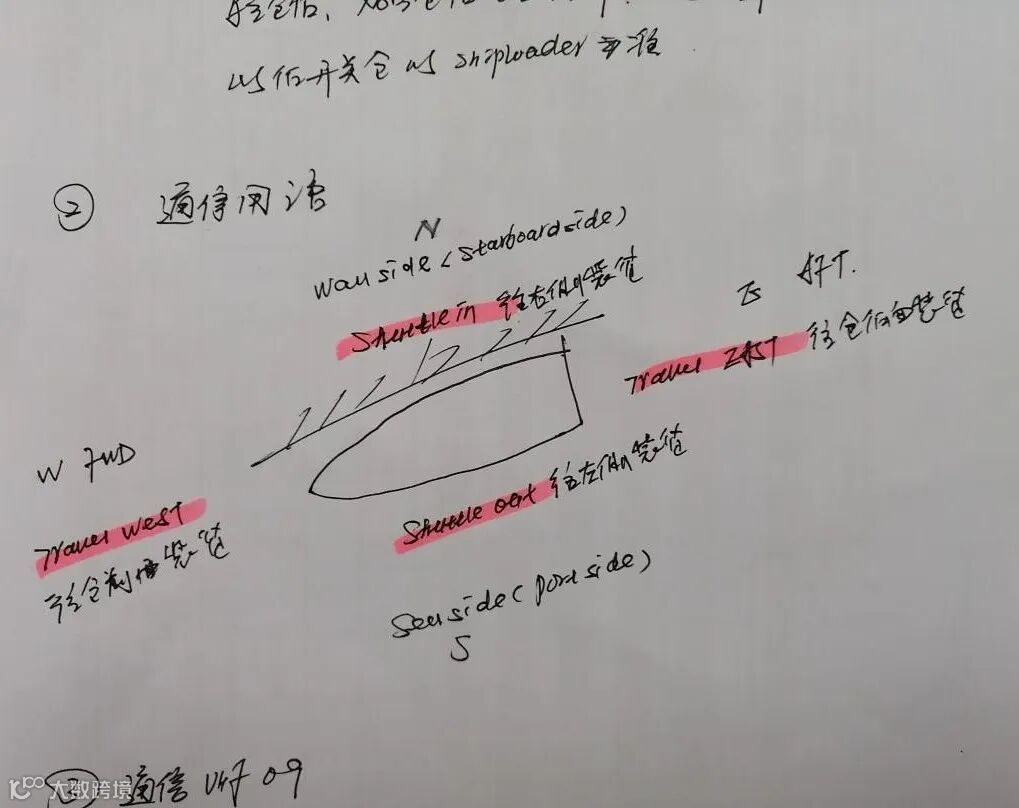 以后开关仓以 shiploader 为准
② 通信用语
N
Wall side (starboard side)
Shuttle in 往右侧装货
E AFT.
Travel EAST 往仓后面装货
W FWD
Travel West
往仓前面装货
Shuttle out 往左侧装货
Sea side (port side)
S
③ 通信 VHF 09
大数跨境